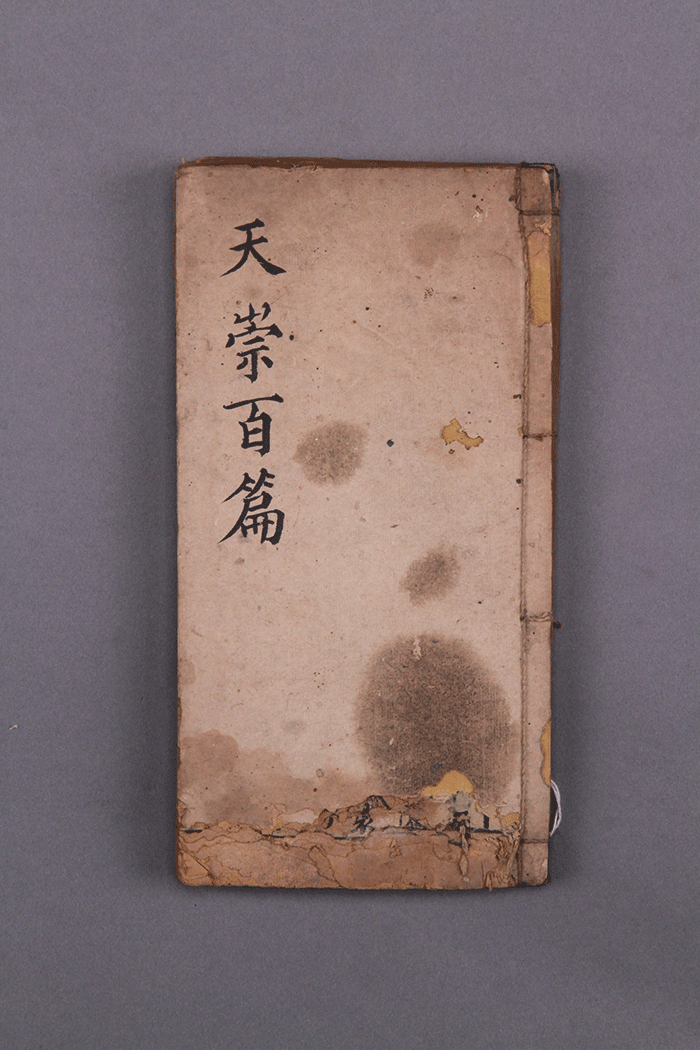 天崇百篇